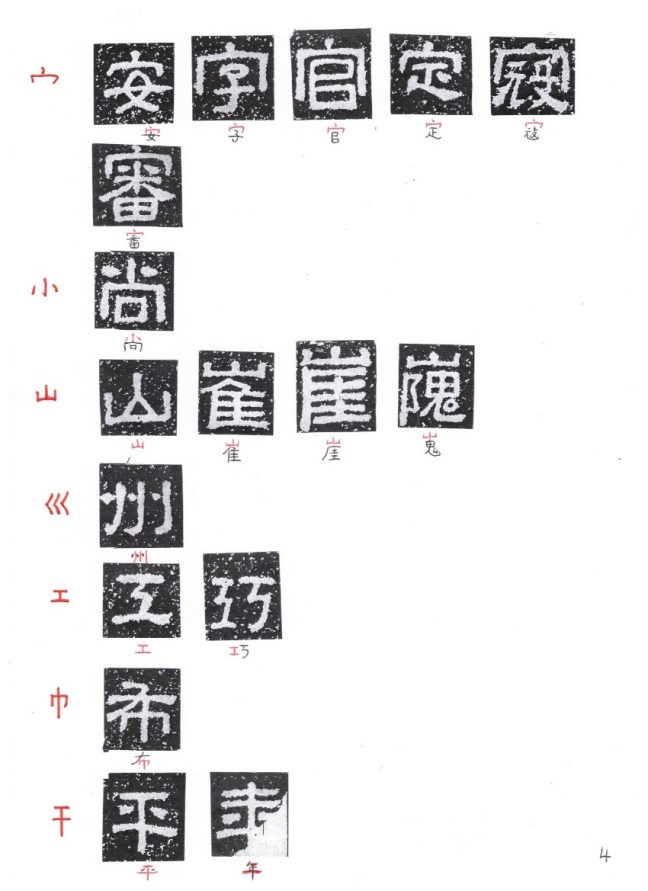 宀 安 字 官 定
安 字 官 定
審
審
小 尚
尚
山 山 崔 崖 嵬
山 崔 崖 嵬
巛 州
州
工 工 巧
工 巧
巾 布
布
干 平 年
平 年
4